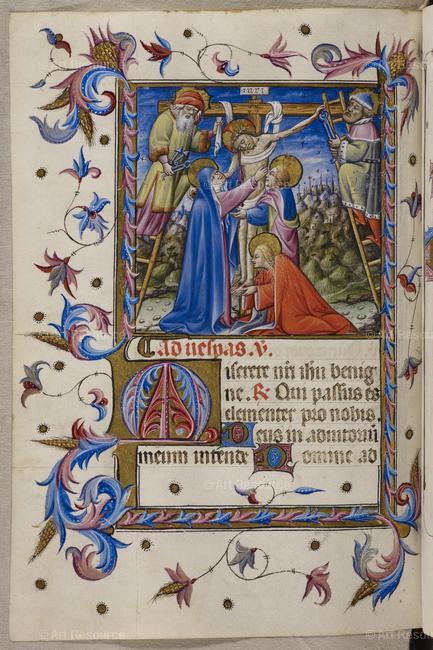 INRI
Ad vespas. V.
Miserere nr̄i ih̄u benig
ne. R Qui passus es
clementer pro nobis.
Deus in adiutoriū
meum intende Domine ad
© Art Resource
© Art Resource